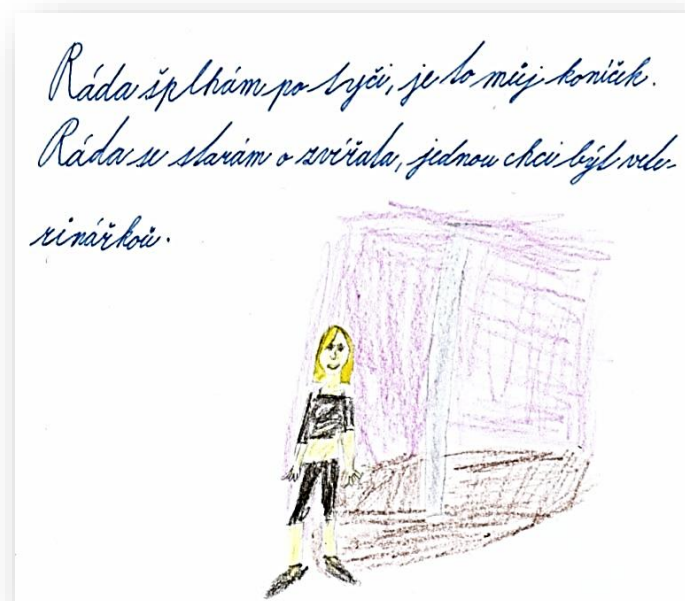 Ráda šplhám po tyči, je to můj koníček.
Ráda se starám o zvířata, jednou chci být vete-
rinářkou.